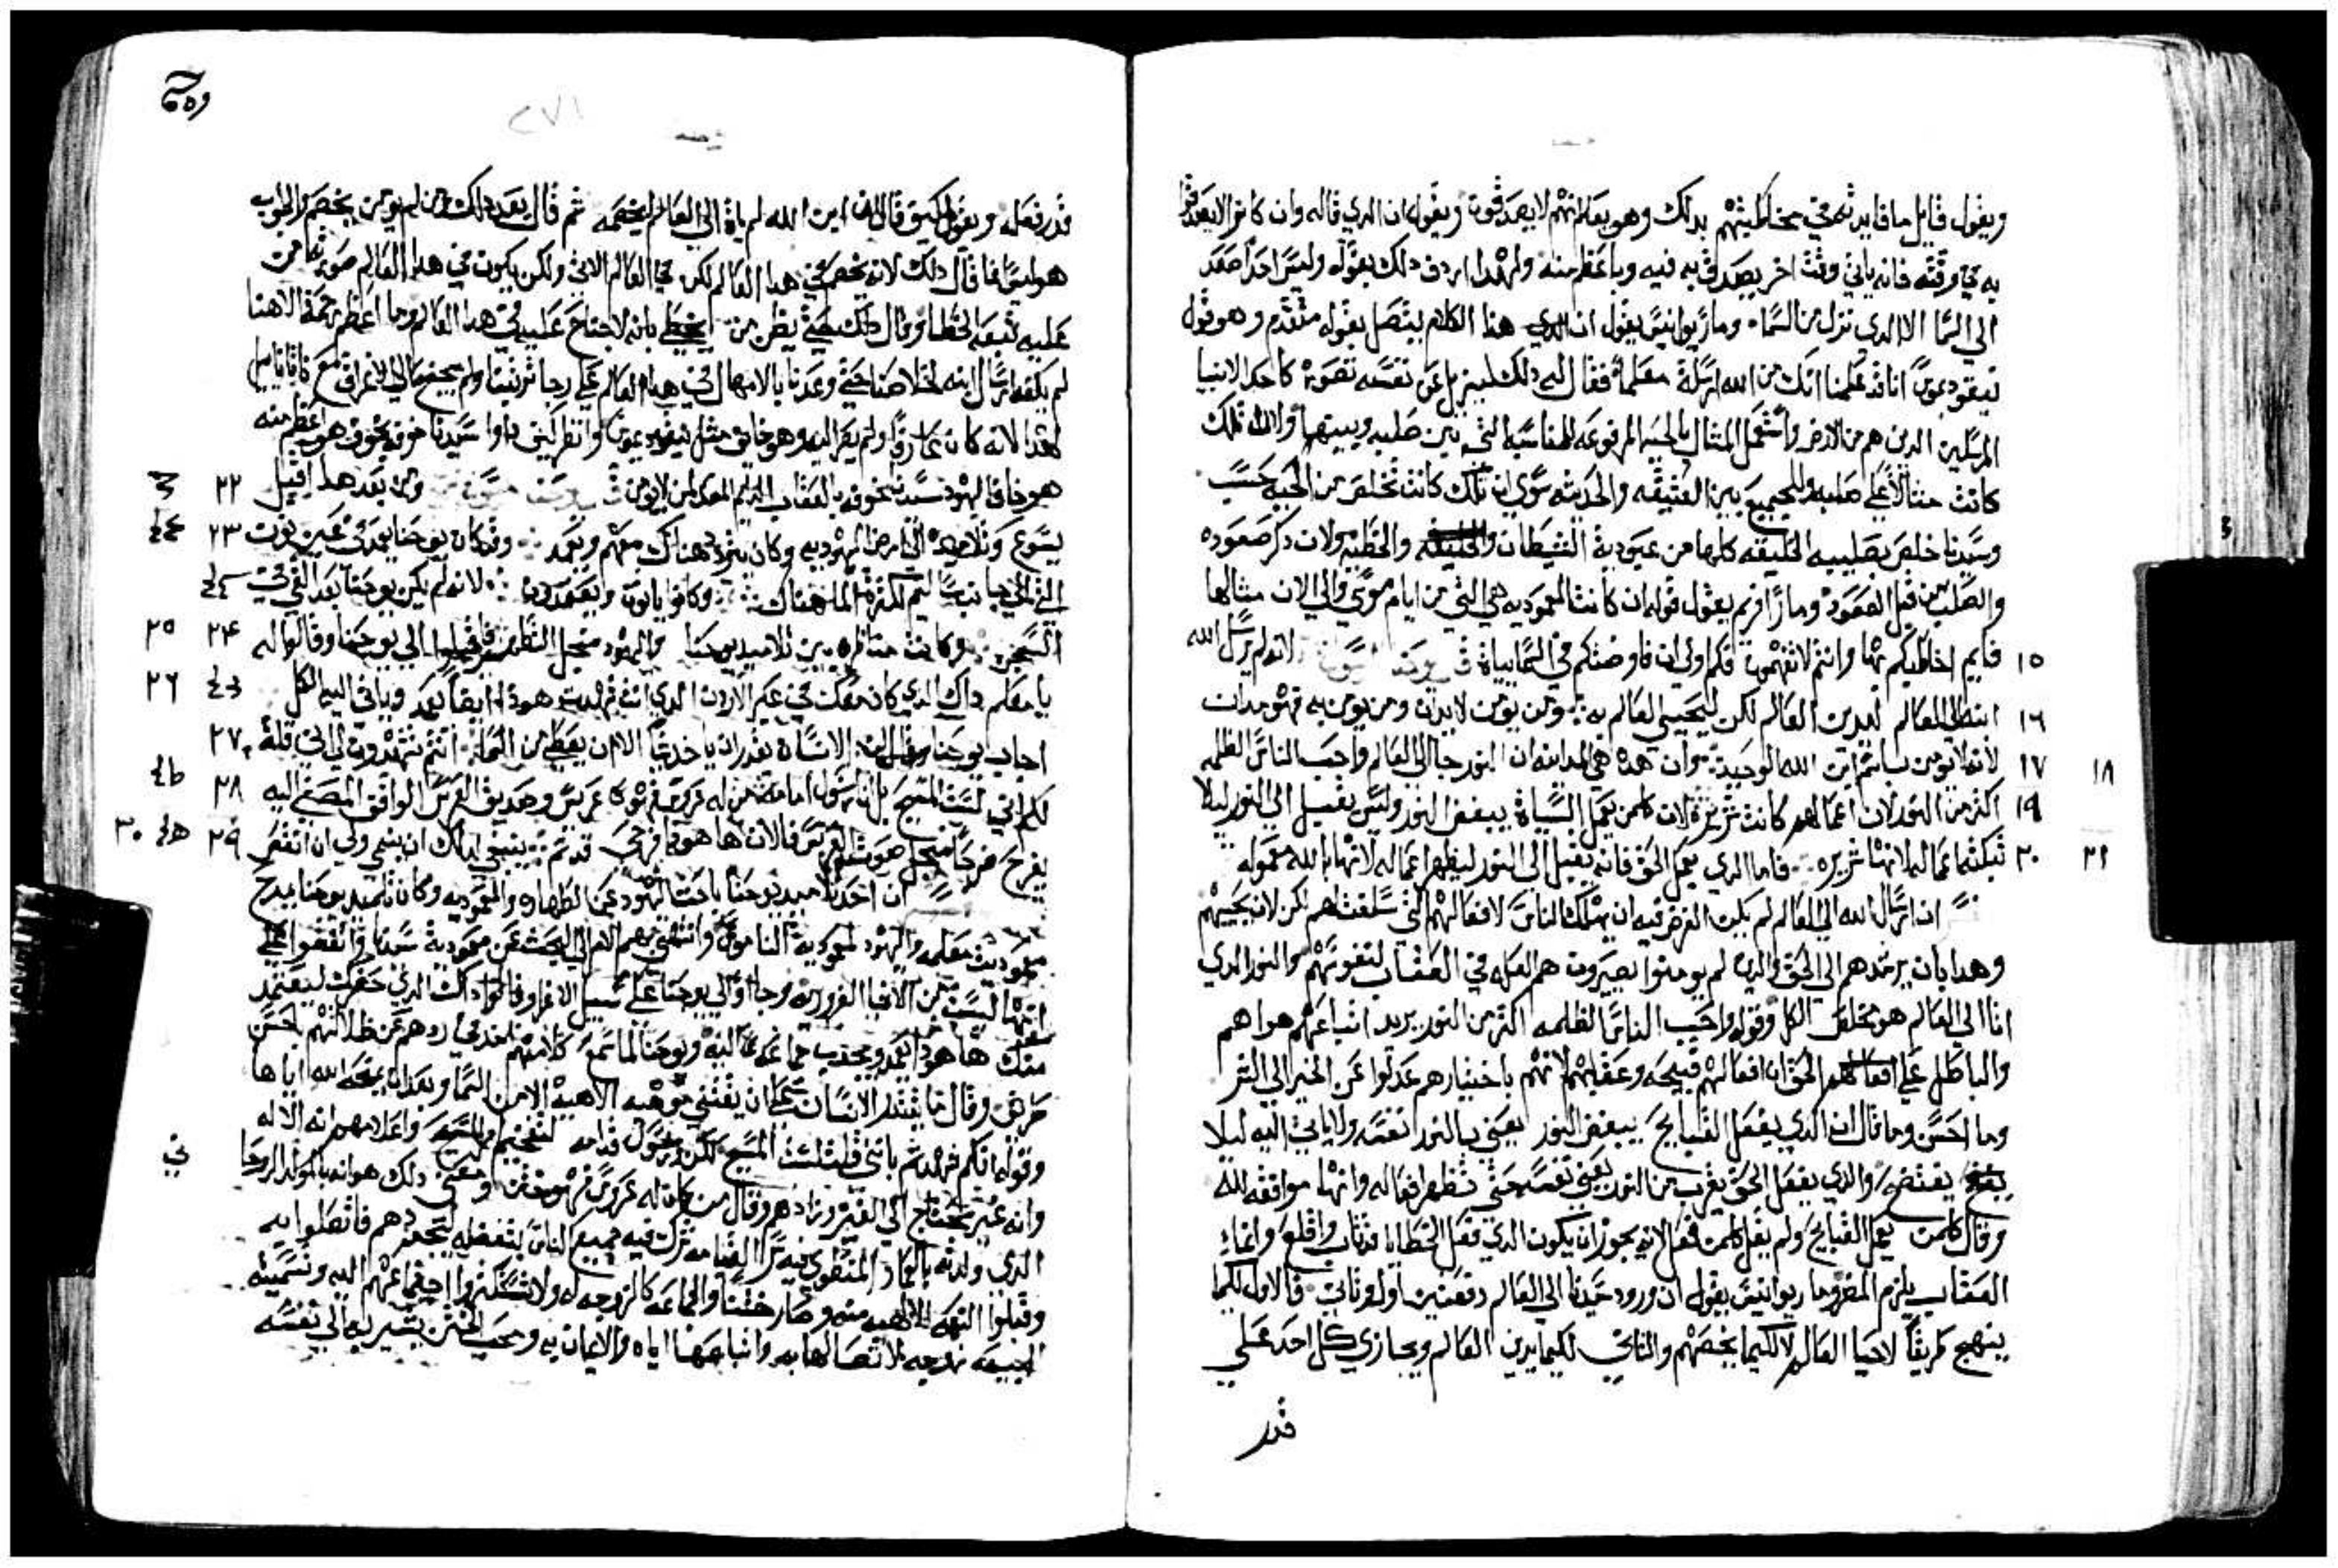 ويقول قايل ما فايدته في مخاطبتهم بذلك وهو يعلم انهم لا يصدقون ويقول ان الدي قاله وان كانوا لا يصدقوا
به في وقته فانه ياتي وقت اخر يصدق به فيه وباعظم منه ولهدا اردف ذلك بقوله وليس احد صعد
الي السما الا الدي نزل من السما وماريوانيس يقول ان هدا الكلام يتصل بقوله متقدم وهو قول
نيقوديموس انا قد علمنا انك من الله ارسلة معلما فقال له ذلك ليزيل عن نفسه تصوره كاحد الانبيا
المرسلين الدين هم من الارض واستعمل المثال بالحيه المرفوعه للمناسبه التي بين صلبه وبينها والاله تلك
كانت مثالا علي صلبه وللجمع بين العتيقه والحديثه سوي ان تلك كانت تخلص من الحيه حسب
وسيدنا خلص بصليبه الخليقه كلها من عبودية الشيطان والخطيه ولان دكر صعوده
والصلب من قبل الصعود ومار افرم يقول قوله ان كانت المعموديه هي التي من ايام موسي والي الان مثالها
١٥ فايم اخاطبكم بها وانتم لا تفهمون فكم اولي ان فاوضتكم في السماييات لانه لم يرسل الله
١٦ ابنه الي العالم ليدين العالم لكن ليحيي العالم به ومن يومن به لا يدان ومن لا يومن به فهو مدان
١٧ ١٨ لانه لا يومن باسم ابن الله الوحيد وان هده هي المداينه ان النور جا الي العالم واحب الناس الظلمه
١٩ اكثر من النور لان اعمالهم كانت شريره لان كلمن يعمل السيات يبغض النور وليس يقبل الي النور ليلا
٢٠ ٢١ تبكته اعماله لانها شريره فاما الدي يعمل الحق فانه يقبل الي النور ليظهر اعماله لانها بالله معموله
ان ارسال الله الي العالم لم يكن الغرض فيه ان يهلك الناس لافعالهم التي سلفت لهم لكن لان يحييهم
وهدا بان يرشدهم الي الحق والدين لم يومنوا يصيرون هم العله في العقاب لنفوسهم والنور الدي
اتا الي العالم هو مخلص الكل وقوله واحب الناس الظلمه اكثر من النور يريد اتباعهم هواهم
والباطل علي الحق ان افعالهم قبيحه وعقلهم لانهم باختيارهم عدلوا عن الخير الي الشر
وما احسن وما قال ان الدي يفعل القبايح يبغض النور يعني بالنور نفسه ولا ياتي اليه ليلا
يفتضح والدي يفعل الحق يقرب من النور يعني نفسه حتي تظهر افعاله وانها موافقه لله
وقال كلمن يعمل القبايح ولم يقل كلمن فعل لانه يجوز ان يكون الدي فعل الخطايا قد تاب واقلع وانما
العقاب يلزم المصر وماريوانيس يقول ان ورود سيدنا الي العالم دفعتين اولي وثاني فالاول لكيما
ينهج طريقا لاحيا العالم لا لكيما يخصمهم والثاني لكيما يدين العالم ويجازي كل احد علي
قدر
٢٧١
قدر فعله ويقول كيف قال ان ابن الله لم يات الي العالم ليخصمه ثم قال بعد ذلك من لم يومن يخصم والجواب
هو ليس انما قال ذلك لانه يخصم في هدا العالم لكن في العالم الاتي ولكن يكون في هدا العالم صورتها من
عليه تبعة الخطا وقال ذلك حتي يظن من يخطي بانه لا جناح عليه في هدا العالم وما اعظم رحمة الاهنا
لم يكفه ارسال ابنه لخلاصنا حتي وعدنا بالامهال في هدا العالم علي رجا توبتنا
لهدا لانه كان عارفا ولم يصر اليه وهو خايف مثل نيقوديموس وانظر كيف داوا سيدنا خوفه بخوف هو اعظم منه
٢٢ هو خاف اليهود سيدنا خوفه بالعقاب الدايم المعد لمن لا يومن ومن بعد هدا اقبل
٢٣ يسوع وتلاميده الي ارض اليهوديه وكان يتردد هناك معهم ويعمد وقد كان يوحنا يعمد في عين نون
التي الي جانب ساليم لكثرة الما هناك وكانوا ياتون ويعتمدون لانه لم يكن يوحنا بعد القي في
٢٤ ٢٥ السجن وكانت مناظره بين تلاميد يوحنا واليهود من اجل التطهير فاقبلوا الي يوحنا وقالوا له
٢٦ يا معلم داك الدي كان معك في عبر الاردن الدي انت شهدت له هودا ايضا يعمد وياتي اليه الكل
٢٧ اجاب يوحنا وقال ان الانسان لا يقدر ان ياخد شيا الا ان يعطي من السما انتم تشهدون لي اني قلت
٢٨ لكم اني لست المسيح بل اني رسول امامه من له عروس فهو عريس وصديق العريس الواقف المصغي اليه
٢٩ ٣٠ يفرح فرحا من اجل صوت العريس فالان ها هودا فرحي قد تم ينبغي لداك ان ينمي ولي ان انقص
ان احد تلاميد يوحنا باحث اليهود عن الطهاره والمعموديه وكان تلميد يوحنا يمدح
معمودية معلمه واليهود لمعمودية الناموس وانتهي بهم الامر الي البحث عن معمودية سيدنا واتفقوا علي
انها ليست من الاشيا الضروريه وجاوا الي يوحنا علي سبيل الاغرا وقالوا داك الدي حضرك ليعتمد
منك ها هودا يعمد ويجدب جماعه اليه ويوحنا لما سمع كلامهم اخد في ردهم عن ظلالتهم باحسن
طريق وقال ما يقتدر الانسان علي ان يقتني موهبه الاهيه الا من السما وبعد ان يمنحه الله اياها
وقوله انكم شهدتم بانني قلت لست المسيح لكن رسول قدامه لتفخيم المسيح واعلامهم انه الاله
وانه غير محتاج الي الغير وزادهم وقال من كان له عروس فهو ختن ومعني ذلك هو انه بالمولد الروحا
الدي ولدته بالعماد المنطوي فيه سر القيامه شرك فيه جميع الناس بتفضله بتجددهم فاتصلوا به
وقبلوا النعمه الالهيه منه وصار ختنا والجماعه كالزوجه له ولا تستنكروا اجتماعهم اليه وتسميته
البيعه زوجه لاتصالها به واتباعها اياه والايمان به ومحب الختن يشير به الي نفسه